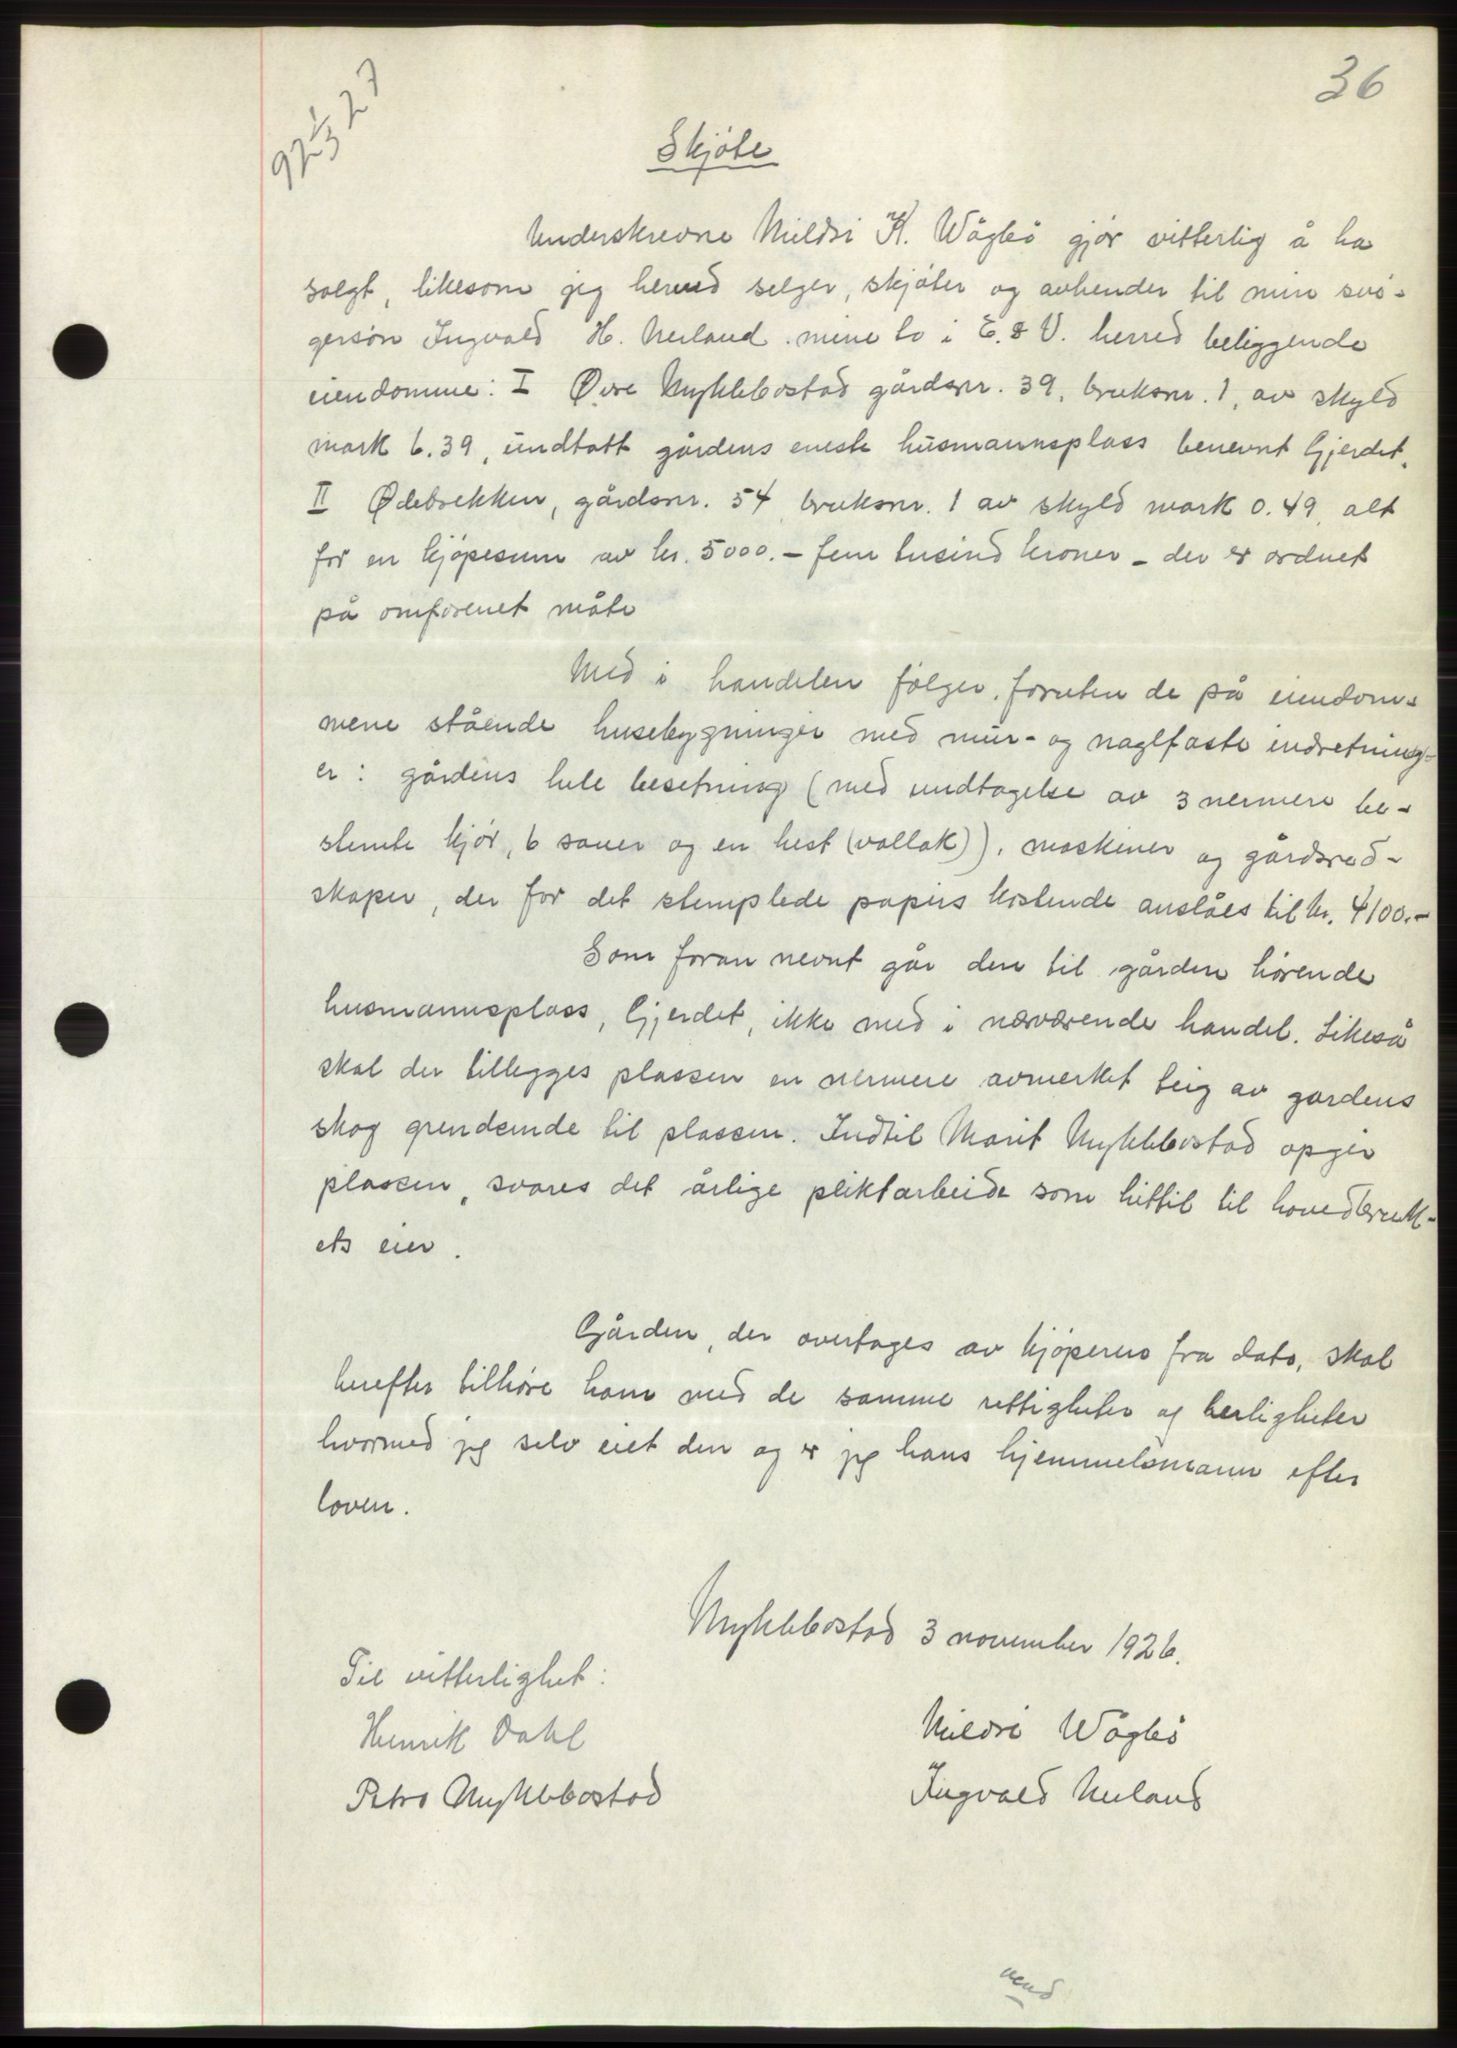 36
92 1/3 27
Skjøte
Underskrevne Mildri K. Wågbø gjør vitterlig å ha
solgt, likesom jeg herved selger, skjøter og avhender til min svi-
gersøn Ingvald H. Neiland mine to i E. & V. herred beliggende
eiendomme: I Øvre Myklebostad gårdsnr. 39, bruksnr. 1, av skyld
mark 6.39, undtatt gårdens eneste husmannsplass benevnt Gjerdet.
II Ødebrekken, gårdsnr. 54 bruksnr. 1 av skyld mark 0.49, alt
for en kjøpesum av kr. 5000.- fem tusind kroner - der er ordnet
på omforenet måte
Med i handelen følger, foruten de på eiendom-
mene stående husebygninger med mur- og naglfaste indretning-
er: gårdens hele besetning (med undtagelse av 3 nermere be-
stemte kjør, 6 sauer og en hest (vallak)), maskiner og gårdsred-
skaper, der for det stemplede papirs kostende anslåes til kr. 4100.-
Som foran nevnt går den til gården hørende
husmannsplass, Gjerdet, ikke med i nærværende handel. Likeså
skal der tillegges plassen en nermere avmerket teig av gardens
skog grendsende til plassen. Indtil Marit Myklebostad opgir
plassen, svares det årlige pliktarbeide som hittil til hovedbruk-
ets eier.
Gården, der overtages av kjøperen fra dato, skal
herefter tilhøre ham med de samme rettigheter og herligheter
hvormed jeg selv eiet den og er jeg hans hjemmelsmann efter
loven.
Myklebostad 3 november 1926.
Til vitterlighet:
Henrik Dahl
Mildri Wågbø
Petra Myklebostad
Ingvald Neiland
vend